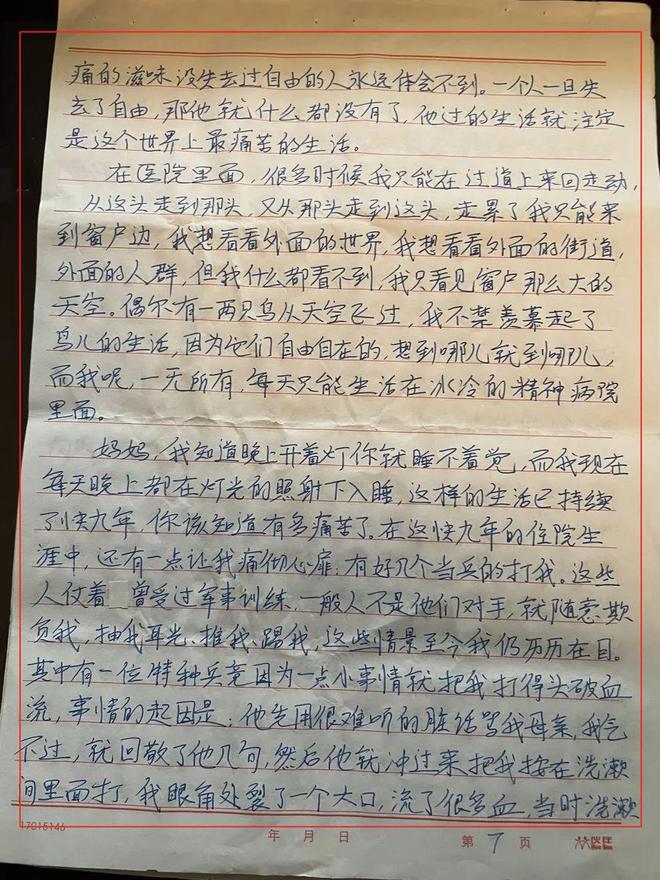 痛的滋味没失去过自由的人永远体会不到。一个人一旦失
去了自由，那他就什么都没有了，他过的生活就注定
是这个世界上最痛苦的生活。
在医院里面，很多时候我只能在过道上来回走动，
从这头走到那头，又从那头走到这头，走累了我只能来
到窗户边，我想看看外面的世界，我想看看外面的街道，
外面的人群，但我什么都看不到，我只看见窗户那么大的
天空。偶尔有一两只鸟从天空飞过，我不禁羡慕起了
鸟儿的生活，因为它们自由自在的，想到哪儿就到哪儿，
而我呢，一无所有，每天只能生活在冰冷的精神病院
里面。
妈妈，我知道晚上开着灯你就睡不着觉，而我现在
每天晚上都在灯光的照射下入睡，这样的生活已持续
了快九年，你该知道有多痛苦了。在这快九年的住院生
涯中，还有一点让我痛彻心扉：有好几个当兵的打我。这些
人仗着 曾受过军事训练，一般人不是他们对手，就随意欺
负我，抽我耳光、推我、踢我，这些情景至今我仍历历在目。
其中有一位特种兵竟因为一点小事情就把我打得头破血
流，事情的起因是：他先用很难听的脏话骂我母亲，我气
不过，就回敬了他几句，然后他就冲过来把我按在洗漱
间里面打，我眼角处裂了一个大口，流了很多血，当时洗漱
17015146
年 月 日
第 7 页